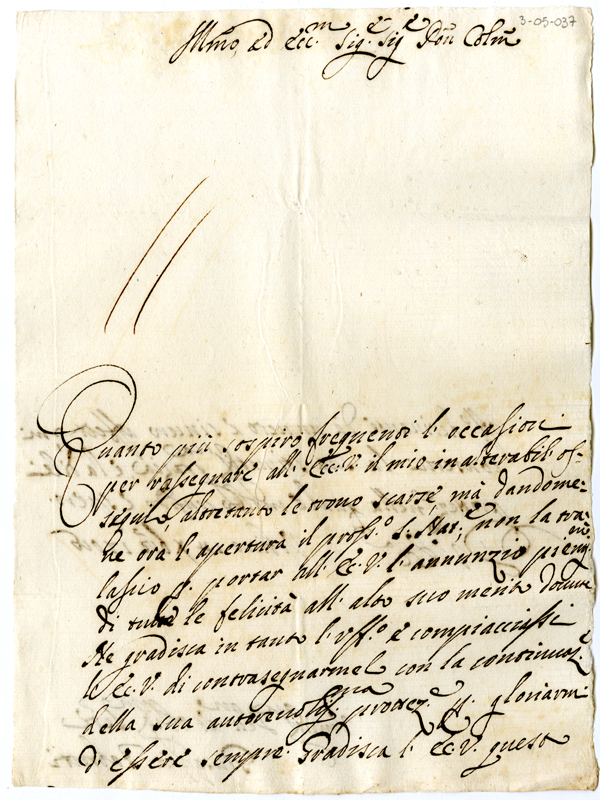 3-05-037
Illmo, ed Ecc.m Sig.e Sig.e Pŕon Colm̃
Quanto più sospiro frequenti l'occasioni
per rassegnare all'Ecc.V. il mio inalterabil os-
sequio, altretanto le trovo scarse, mà dandome-
ne ora l'apertura il pross.o S. Nat.e non la tra-
lascio p. portar all'Ecc.V. l'annunzio
di tutte le felicità all'alto suo merito dovute
Ne gradisca in tanto l'uff.o e compiacciasi
l'Ecc.V. di contrasegnarmel con la continuaz.e
della sua autorevoliss.ma protez.e p. gloriarmi
d'essere sempre. Gradisca l'Ecc.V. questo